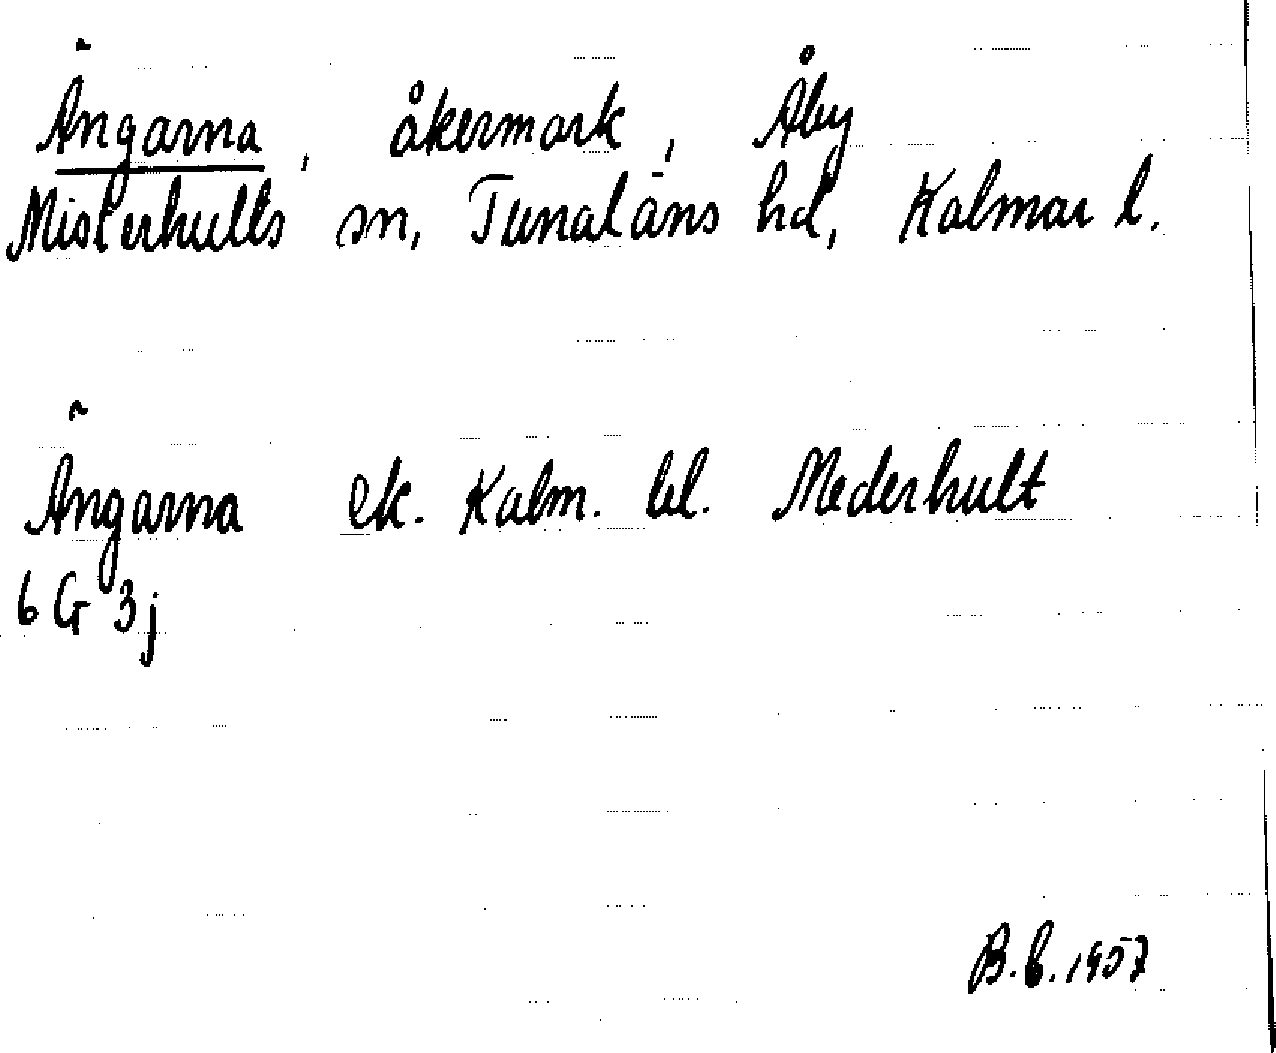 Ängarna, åkermark, Åby
Misterhults sn, Tunaläns hd, Kalmar l.
Ängarna ek. Kalm. bl. Mederhult
6 G 3j
B.b. 1957